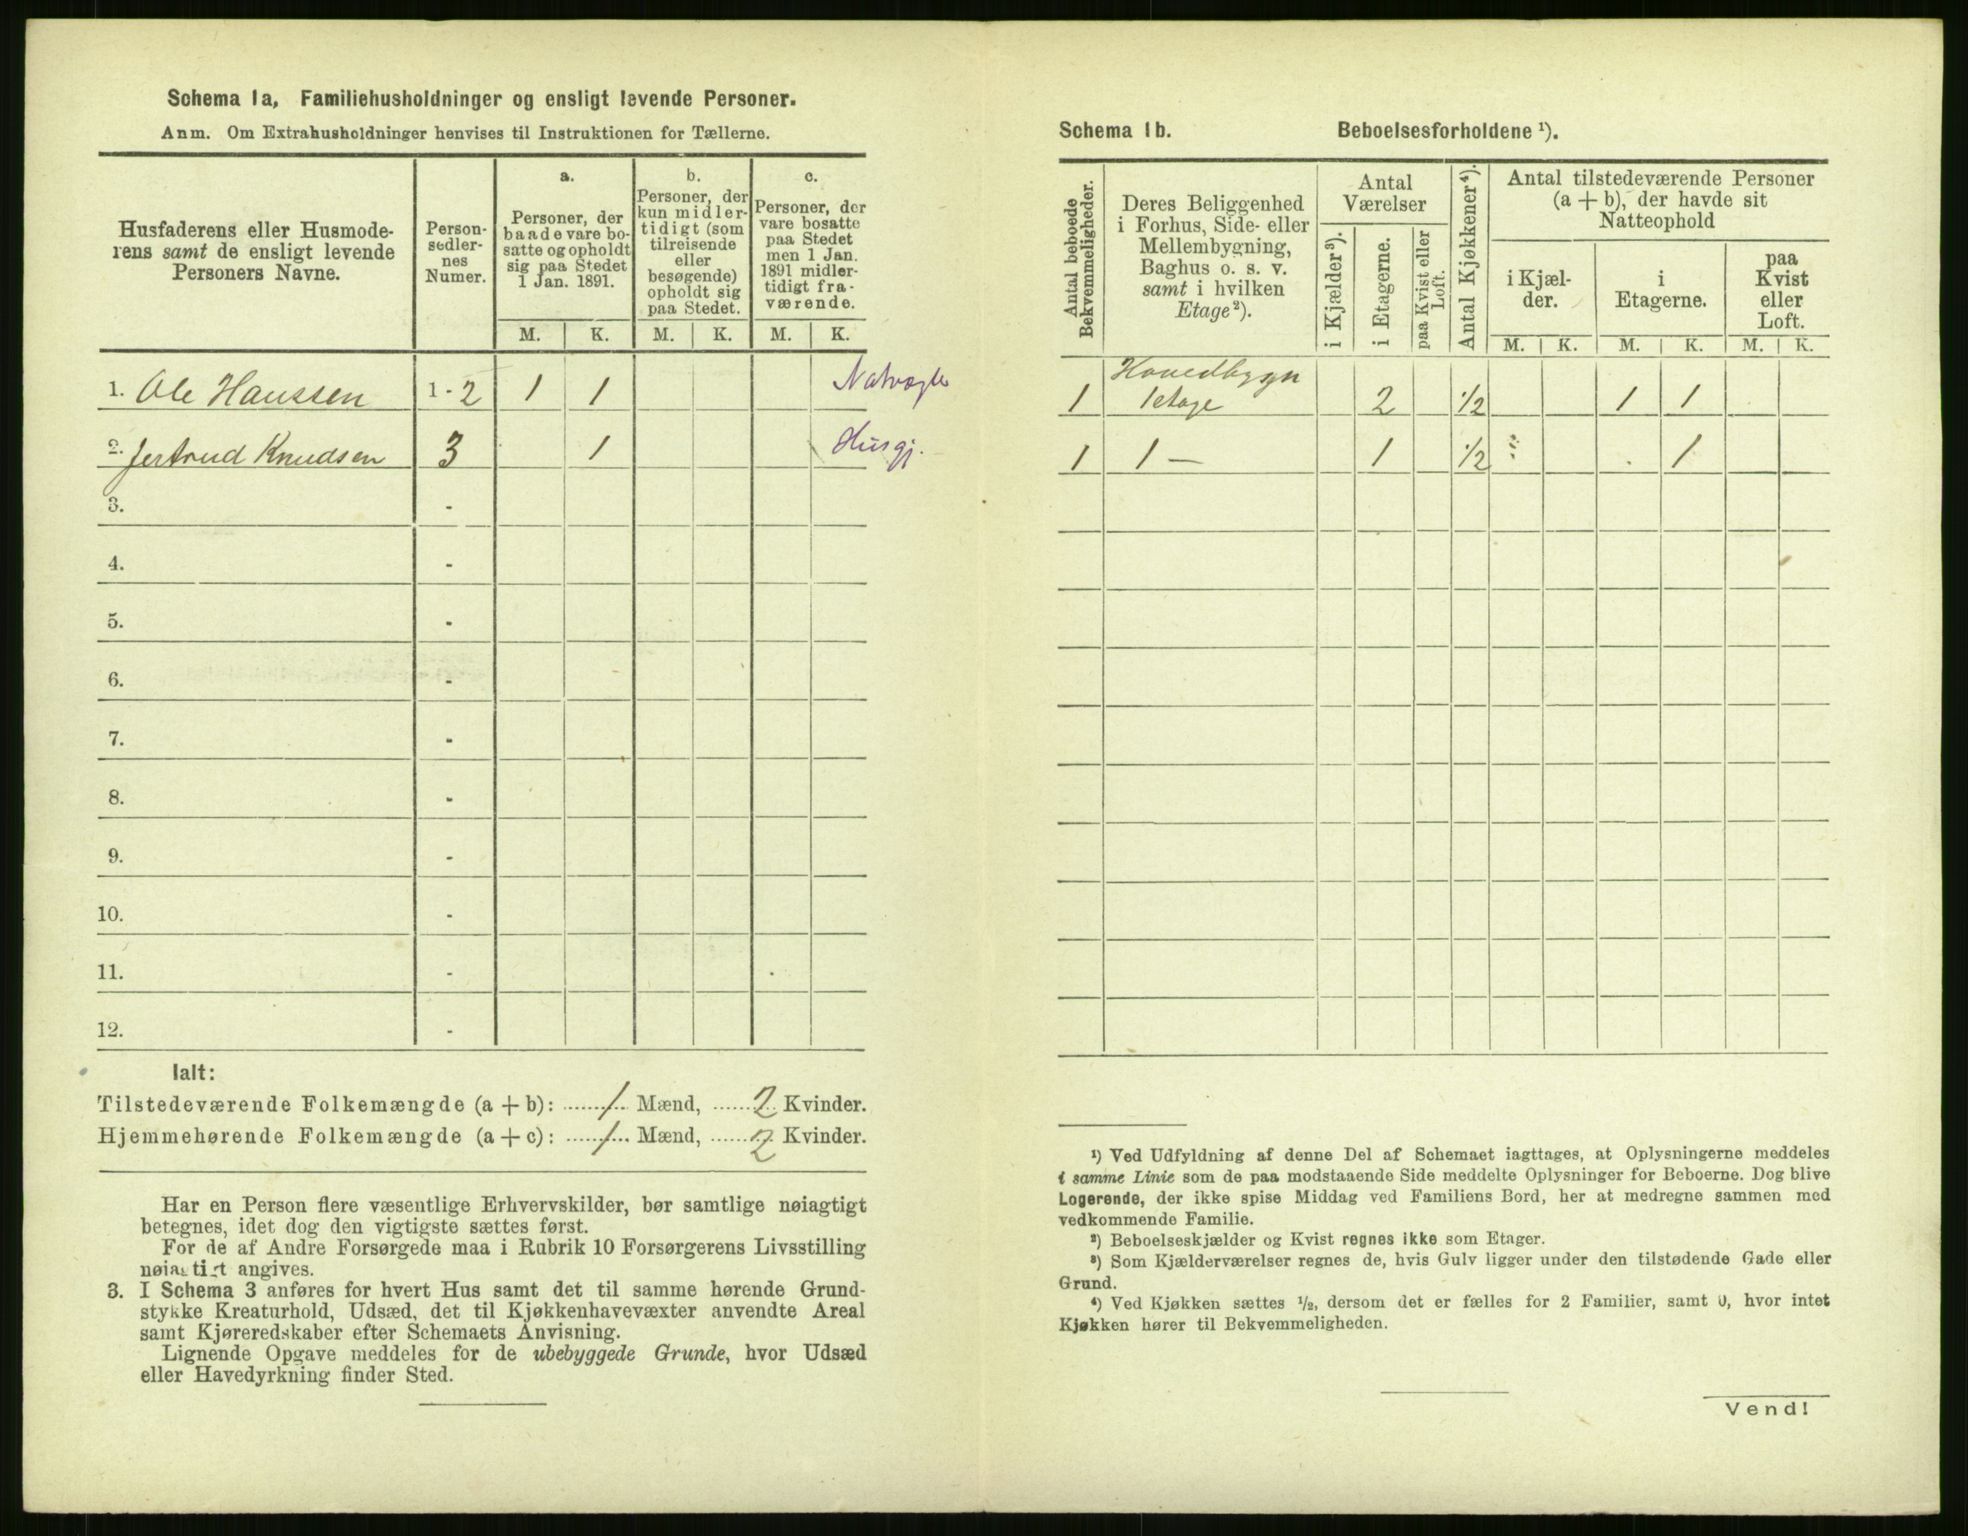 Schema 1a, Familiehusholdninger og ensligt levende Personer.
Anm. Om Extrahusholdninger henvises til Instruktionen for Tællerne.
Husfaderens eller Husmode-
rens samt de ensligt levende
Personers Navne.
Person-
sedler-
nes
Numer.
a.
Personer, der
baade vare bo-
satte og opholdt
sig paa Stedet
1 Jan. 1891.
b.
Personer, der
kun midler-
tidigt (som
tilreisende
eller
besøgende)
opholdt sig
paa Stedet.
c.
Personer, der
vare bosatte
paa Stedet
men 1 Jan.
1891 midler-
tidigt fra-
værende.
M. K. M. K. M. K.
1. Ole Hanssen 1-2 1 1 Natvægter
2. Jertrud Knudsen 3 1 Husgj.
3. -
4. -
5. -
6. -
7. -
8. -
9. -
10. -
11. -
12. -
Ialt:
Tilstedeværende Folkemængde (a + b): 1 Mænd, 2 Kvinder.
Hjemmehørende Folkemængde (a + c): 1 Mænd, 2 Kvinder.
Har en Person flere væsentlige Erhvervskilder, bør samtlige nøiagtigt
betegnes, idet dog den vigtigste sættes først.
For de af Andre Forsørgede maa i Rubrik 10 Forsørgerens Livsstilling
nøiagtigt angives.
3. I Schema 3 anføres for hvert Hus samt det til samme hørende Grund-
stykke Kreaturhold, Udsæd, det til Kjøkkenhavevæxter anvendte Areal
samt Kjøreredskaber efter Schemaets Anvisning.
Lignende Opgave meddeles for de ubebyggede Grunde, hvor Udsæd
eller Havedyrkning finder Sted.
Schema 1b. Beboelsesforholdene ¹).
Antal beboede
Bekvemmeligheder.
Deres Beliggenhed
i Forhus, Side- eller
Mellembygning,
Baghus o. s. v.
samt i hvilken
Etage ²).
Antal
Værelser
i Kjælder ³).
i Etagerne.
paa Kvist eller
Loft.
Antal Kjøkkener ⁴).
Antal tilstedeværende Personer
(a + b), der havde sit
Natteophold
i Kjæl-
der.
i
Etagerne.
paa
Kvist
eller
Loft.
M. K. M. K. M. K.
Hovedbygn
1 1 etage 2 1/2 1 1
1 1 — 1 1/2 1
¹) Ved Udfyldning af denne Del af Schemaet iagttages, at Oplysningerne meddeles
i samme Linie som de paa modstaaende Side meddelte Oplysninger for Beboerne. Dog blive
Logerende, der ikke spise Middag ved Familiens Bord, her at medregne sammen med
vedkommende Familie.
²) Beboelseskjælder og Kvist regnes ikke som Etager.
³) Som Kjælderværelser regnes de, hvis Gulv ligger under den tilstødende Gade eller
Grund.
⁴) Ved Kjøkken sættes ½, dersom det er fælles for 2 Familier, samt 0, hvor intet
Kjøkken hører til Bekvemmeligheden.
Vend!